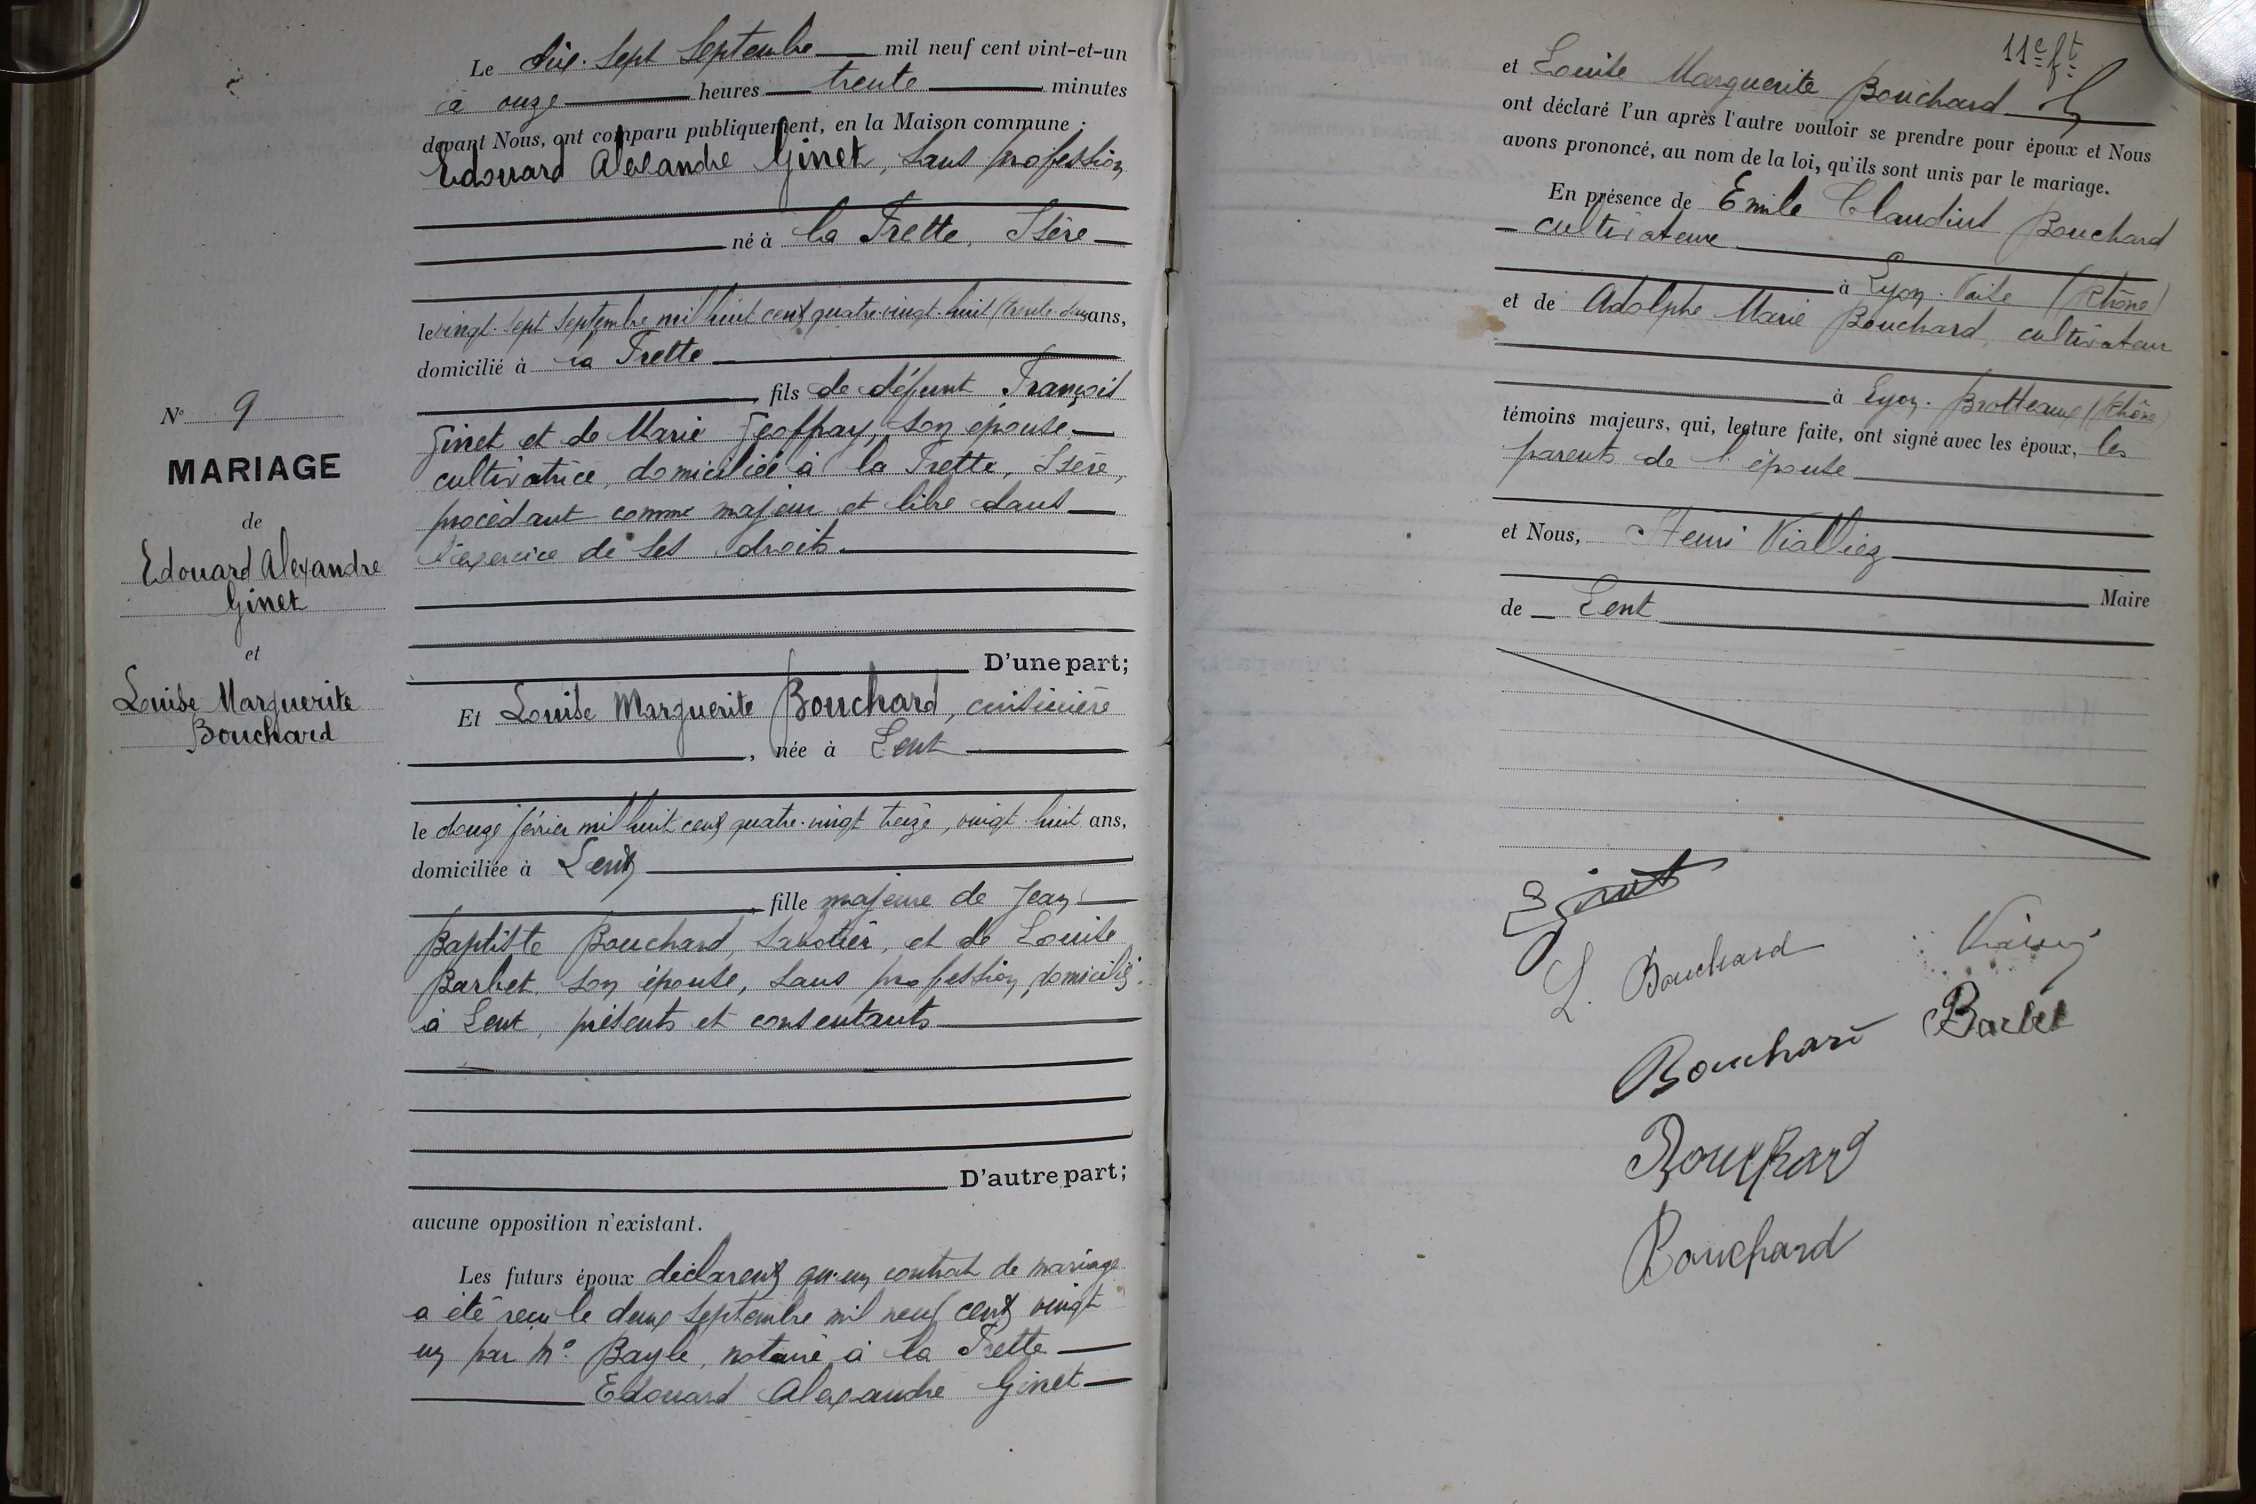 Le dix-sept Septembre mil neuf cent vint-et-un
à onze heures trente minutes
devant Nous, ont comparu publiquement, en la Maison commune :
Edouard Alexandre Ginet, sans profession
né à la Frette, Isère
le vingt-sept Septembre mil huit cent quatre-vingt-huit (trente-deux ans,
domicilié à la Frette
fils de défunt François
Ginet et de Marie Geoffray, son épouse
cultivatrice, domiciliée à la Frette, Isère,
procédant comme majeur et libre dans
l'exercice de ses droits.
D'une part;
N° 9
MARIAGE
de
Edouard Alexandre
Ginet
et
Louise Marguerite
Bouchard
Et Louise Marguerite Bouchard, cuisinière
, née à Lent
le douze février mil huit cent quatre-vingt treize, vingt-huit ans,
domiciliée à Lent
fille majeure de Jean
Baptiste Bouchard, sabotier, et de Louise
Barbet, son épouse, sans profession, domiciliés
à Lent, présents et consentants
D'autre part;
aucune opposition n'existant.
Les futurs époux déclarent qu'un contrat de mariage
a été reçu le deux Septembre mil neuf cent vingt
un par Me Bayle, notaire à la Frette
Edouard Alexandre Ginet
11e ft
et Louise Marguerite Bouchard
ont déclaré l'un après l'autre vouloir se prendre pour époux et Nous
avons prononcé, au nom de la loi, qu'ils sont unis par le mariage.
En présence de Emile Claudius Bouchard
cultivateur
à Lyon-Vaise (Rhône)
et de Adolphe Marie Bouchard, cultivateur
à Lyon-Brotteaux (Rhône)
témoins majeurs, qui, lecture faite, ont signé avec les époux, les
parents de l'épouse
et Nous, Henri Vialliez
Maire
de Lent
E Ginet
L. Bouchard
Bouchard Barbet
Bouchard
Bouchard